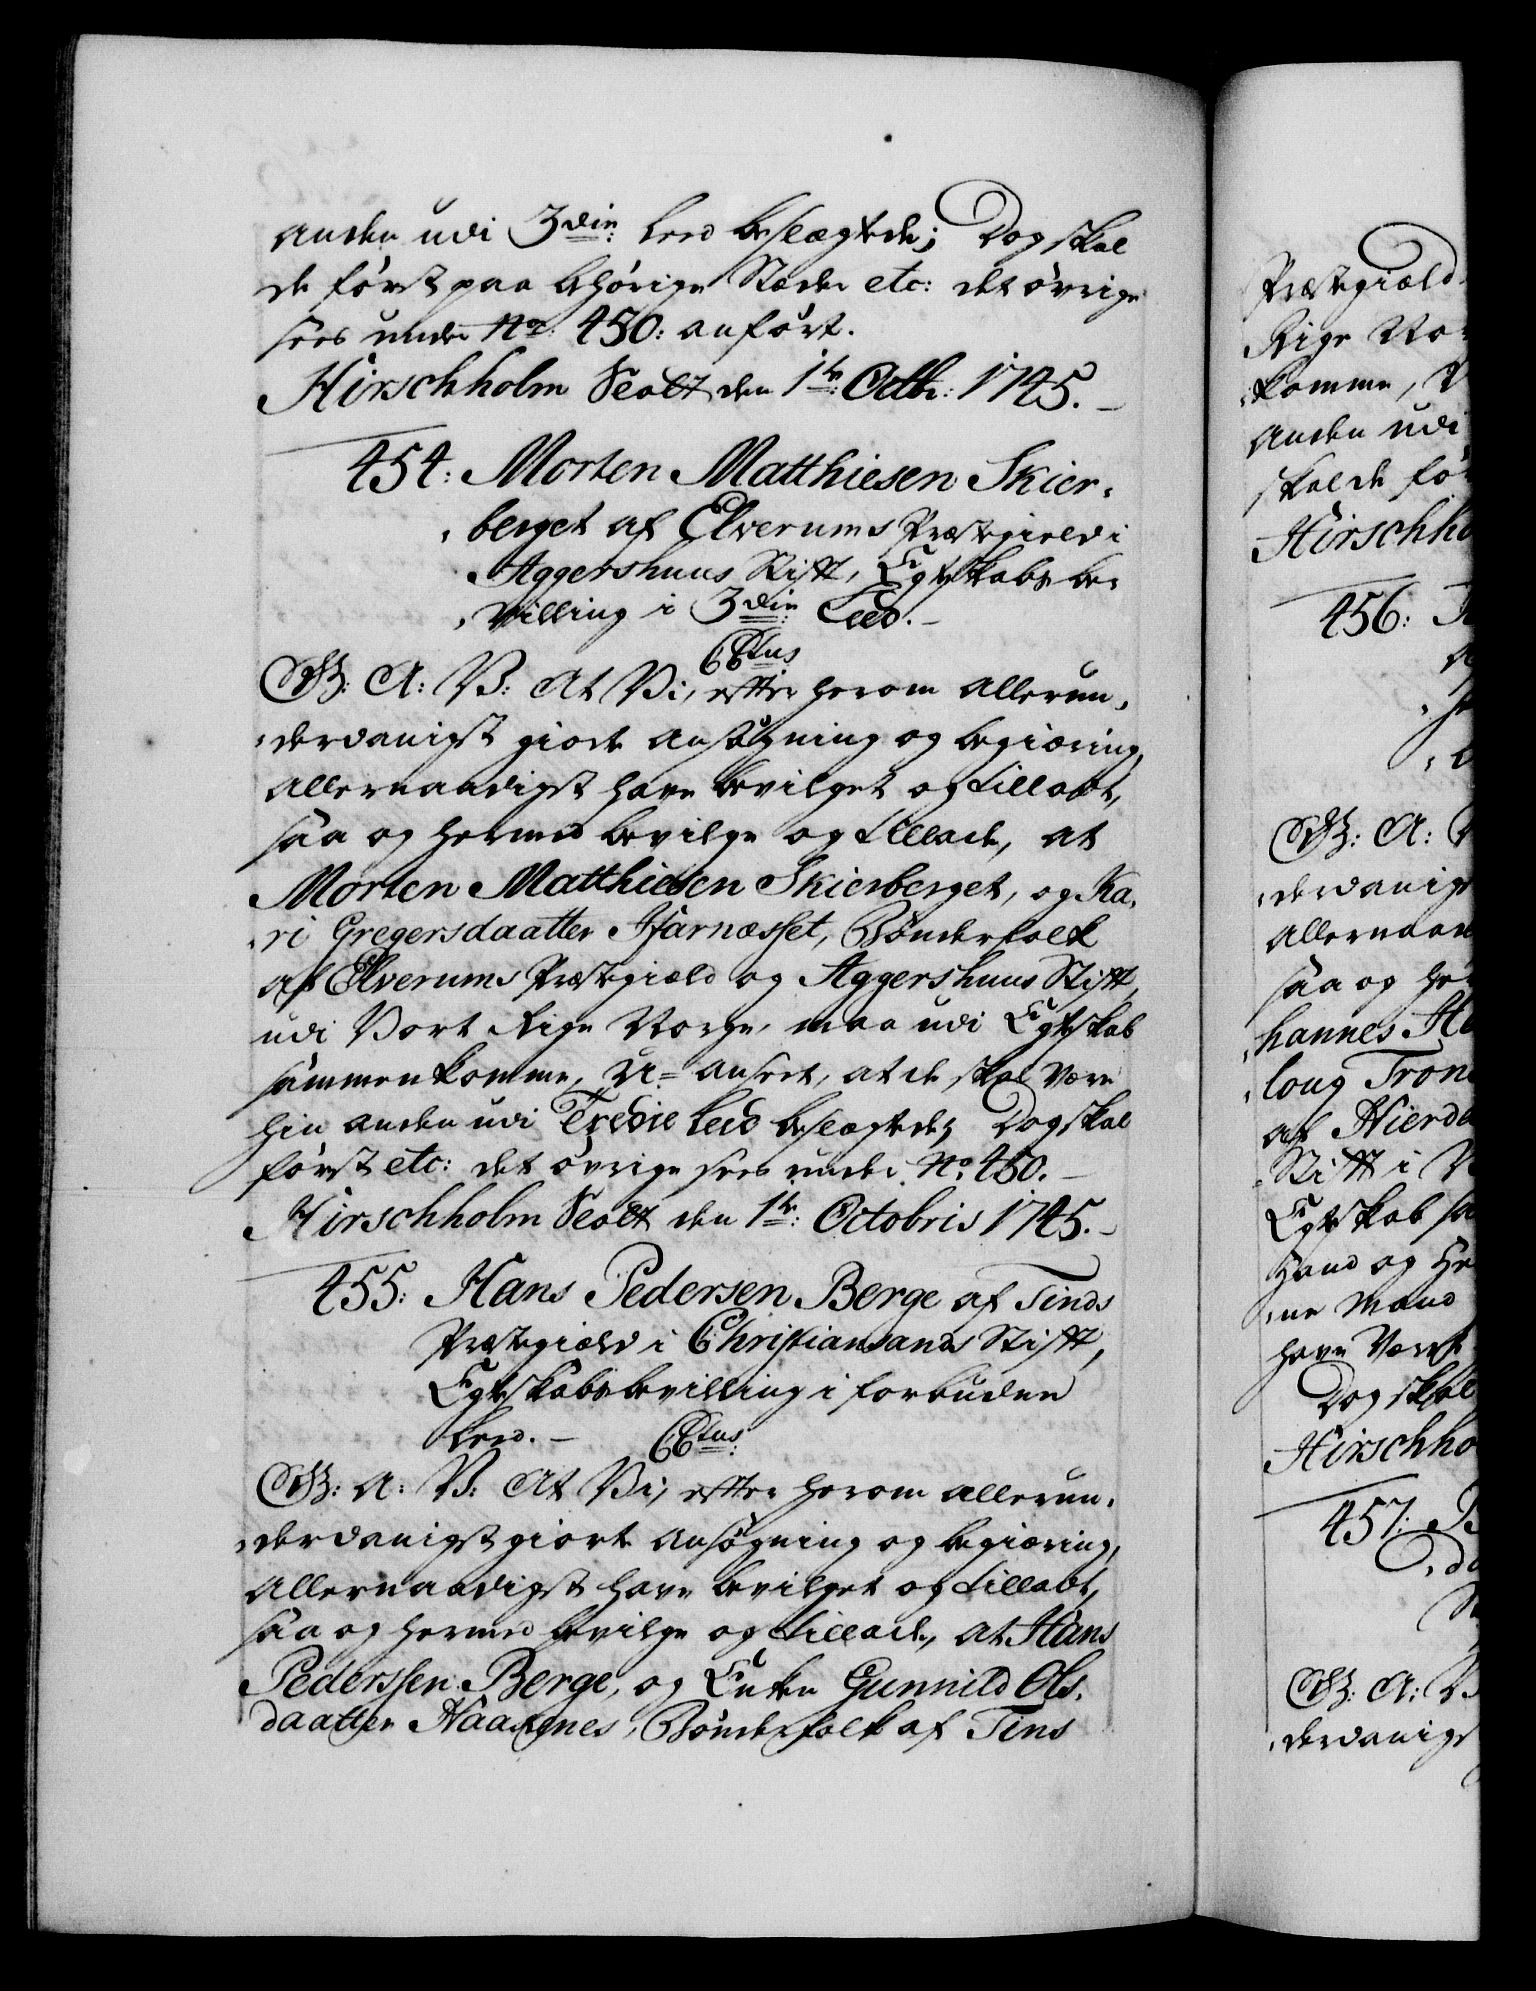 anden udi 3die: Leed beslægtede; Dog skal
de først paa behørige Stæder etc: det øvrige
sees under No: 450: anført.
Hirschholm Slott den 1te: Octbr: 1745.
454: Morten Matthiesen Skier-
berget af Elverums Præstegield i
Aggershuus Stift, Egteskabs be-
villing i 3die: Leed.
CCtus
G: A: V: At Vi, efter herom allerun-
derdanigst giorte Ansøgning og begiæring,
allernaadigst have bevilget og tilladt,
saa og hermed bevilge og tillade, at
Morten Matthiesen Skierberget, og Ka-
ri Gregersdaatter Hjarnæsset, Bønderfolk
af Elverums Præstegiæld og Aggershuus Stift,
udi Vort Rige Norge, maa udi Egteskab
sammenkomme, U-anseet, at de skal være
hin anden udi Tredie Leed beslægtede; Dog skal
først etc: det øvrige sees under No. 450.
Hirschholm Slott den 1te: Octobris 1745.
455: Hans Pedersen Berge af Tinds
Præstegiæld i Christiansands Stift,
Egteskabs bevilling i forbuden
Leed.
CCtus:
G: A: V: At Vi, efter herom allerun-
derdanigst giorte Ansøgning og begiæring,
allernaadigst have bevilget og tilladt,
saa og hermed bevilge og tillade, at Hans
Pederssen Berge, og Enken Gunnild Ols-
daatter Haagenes, Bønderfolk af Tins
Præstegiæld
Rige Nor
komme, U
anden udi
skal de før
Hirschho
456:
G: A: V
derdanigs
allernaad
saa og her
hannes
loug Tron
af Hierda
Stift i N
Egteskab sa
Hand og He
ne Mand
have været
Dog skal
Hirschho
457:
G: A: V
derdanigs